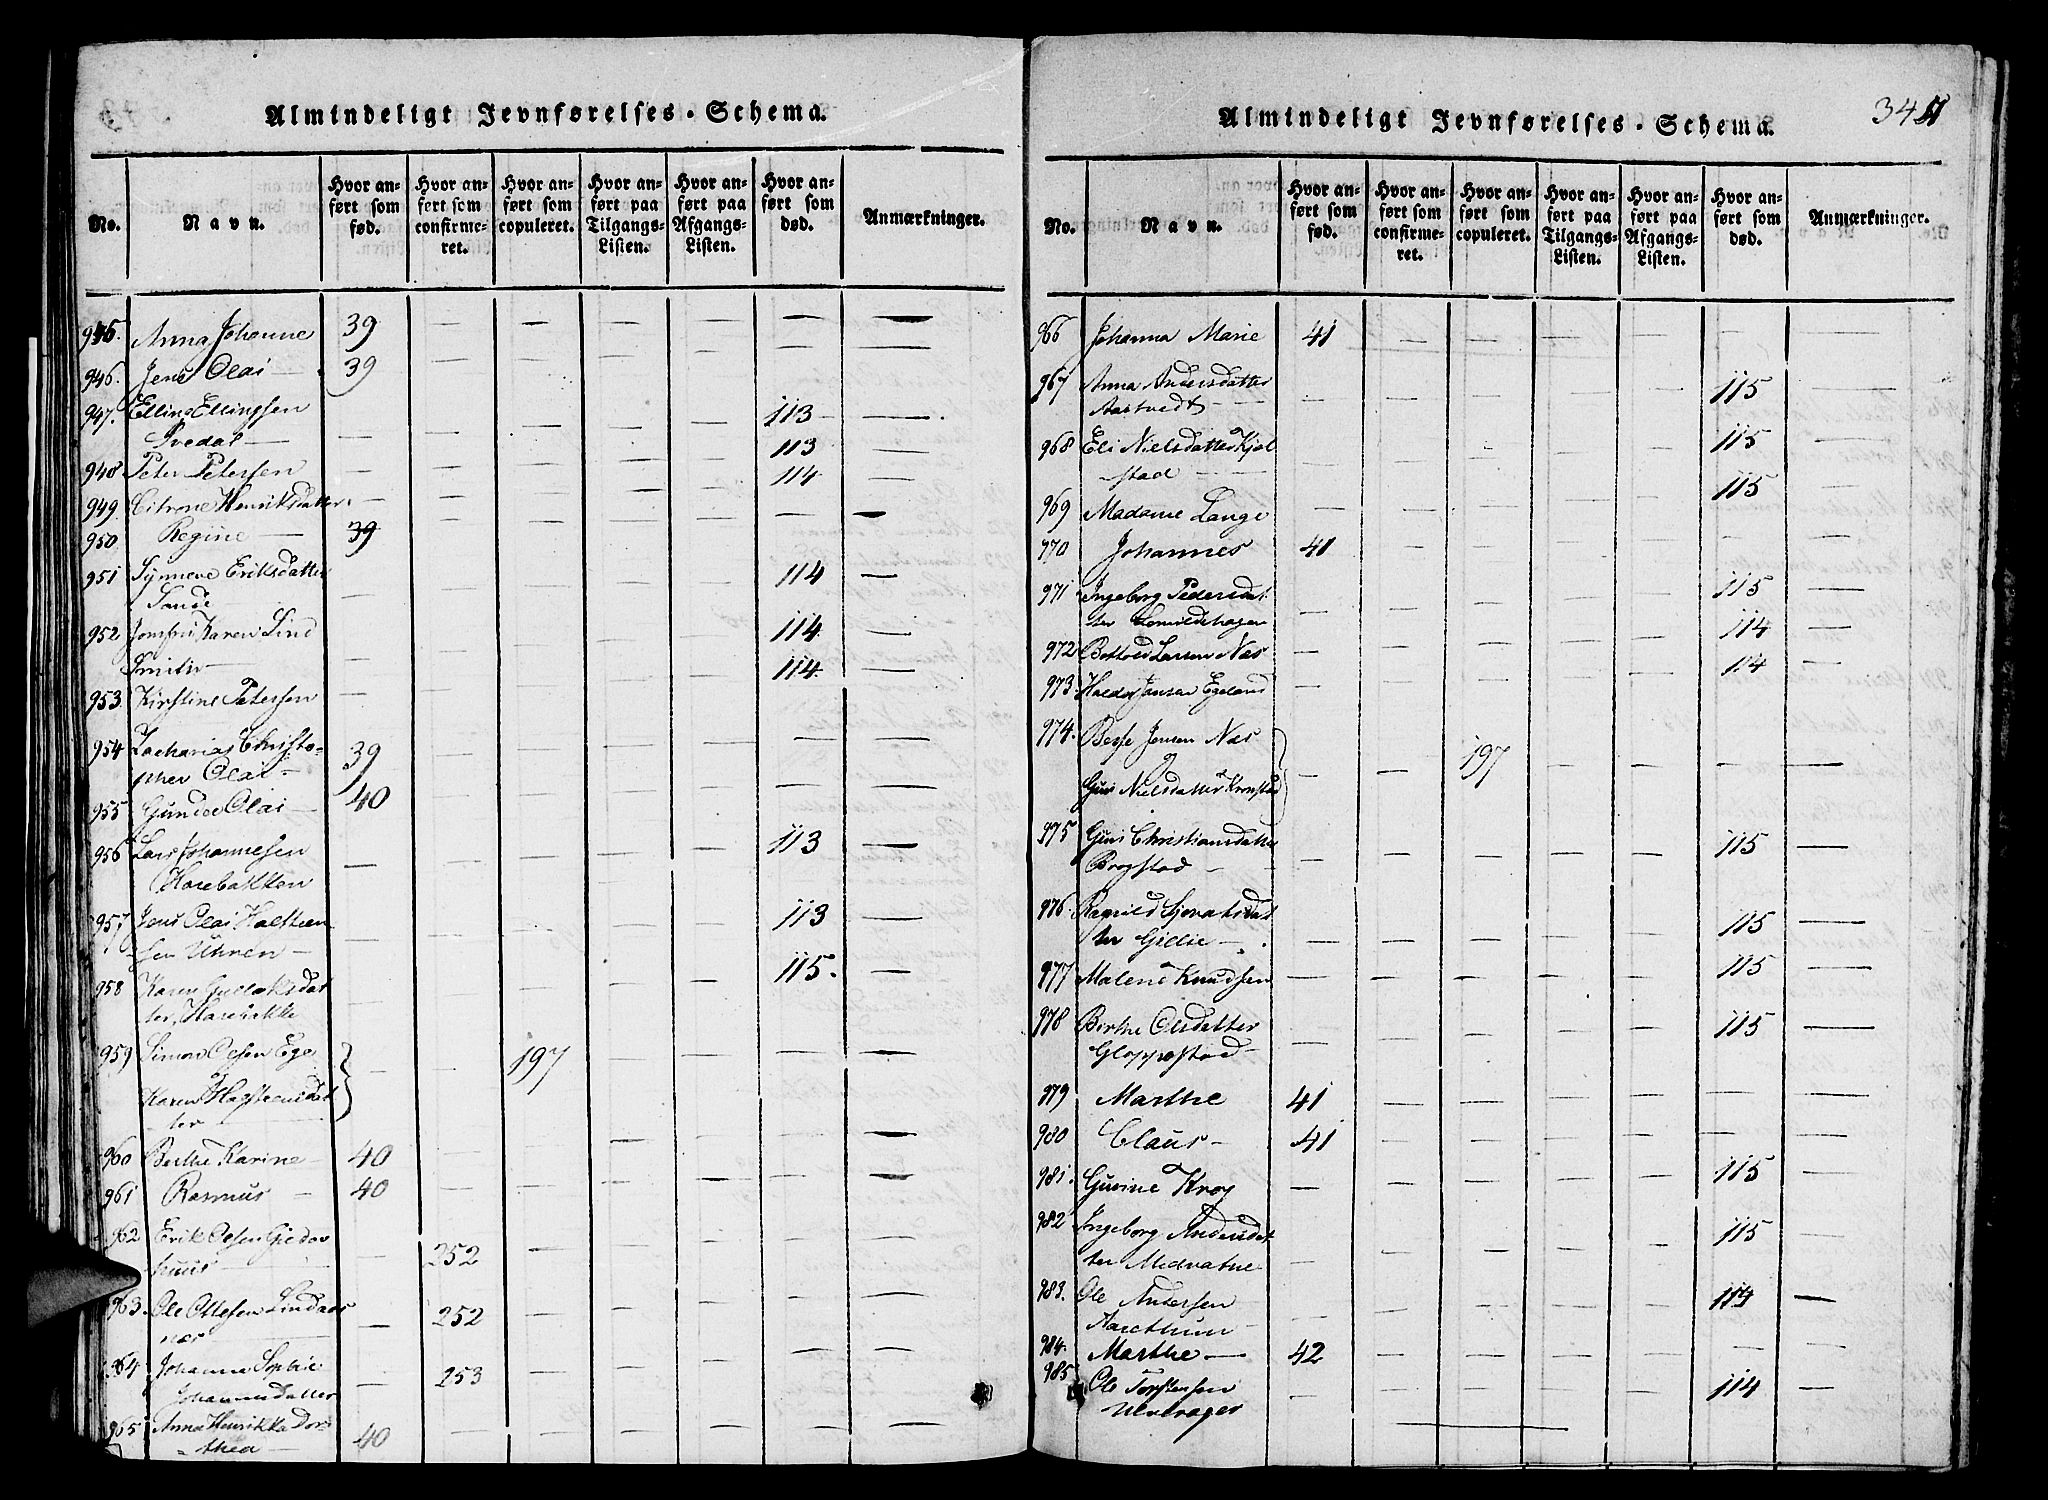 Almindeligt Jevnførelses-Schema.
No.
Navn.
Hvor an-
ført som
fød.
Hvor an-
ført som
confirme-
ret.
Hvor an-
ført som
copuleret.
Hvor an-
ført paa
Tilgangs-
Listen.
Hvor an-
ført paa
Afgangs-
Listen.
Hvor an-
ført som
død.
Anmærkninger.
945. Anna Johanne 39 — — — — — —
946. Jens Olai — 39 — — — — — —
947. Elling Ellingsen
Svedal — — — — — — 113 —
948 Peter Petersen — — — — — 113 —
949 Citrone Henriksdatter — — — — — 114 —
950. Regine — 39 — — — — — —
951 Synneve Eriksdatter
Sande — — — — — 114 —
952 Jomfru Karen Lind
Smith — — — — — — 114. —
953. Kirstine Petersen — — — — — 114. —
954 Zacharias Christo-
pher Olai — 39 — — — — — —
955 Gunder Olai — 40 — — — — — —
956 Lars Johannesen — — — — — 113 —
957 Jens Olai Halsteen-
sen Uhren — — — — — — 113 —
958 Karen Gullaksdat
ter, — — — — — 115. —
959 Simon Olsen Ege
Karen Halsteensdat
ter — — 197 — — — —
960 Berthe Karine — 40 — — — — — —
961 Rasmus — 40 — — — — — —
962 Erik Olsen
huus — — 252 — — — — —
963. Ole Ottesen Lindaas
nær — 252 — — — — —
964 Johanne Sophie
Johannesdatter — 253 — — — — —
965 Anna Henrikka Dor-
thea — 40 — — — — — —
Almindeligt Jevnførelses-Schema.
No.
Navn.
Hvor an-
ført som
fød.
Hvor an-
ført som
confirme-
ret.
Hvor an-
ført som
copuleret.
Hvor an-
ført paa
Tilgangs-
Listen.
Hvor an-
ført paa
Afgangs-
Listen.
Hvor an-
ført som
død.
Anmærkninger.
966 Johanna Marie 41 — — — — — —
967 Anna Andersdatter
Aastvedt — — — — — 115 —
968 Eli Nielsdatter Kjøl
stad — — — — — — 115 —
969 Madame Lange — — — — — 115 —
970 Johannes 41 — — — — — —
971 Ingeborg Pedersdat
ter — — — — — 115 —
972 Larsen Næs — — — — — 114 —
973 Jansen Egeland — — — — — 114 —
974. Jensen Næs
Guri Nielsdatter — — 197 — — — —
975 Guri Christiansdatter
Brogstad — — — — — — 115 —
976. Ragnild Sjovatsdat
ter Gillie — — — — — — 115 —
977 Malene Knudsen — — — — — 115 —
978 Berthe Olsdatter
Gloppestad — — — — — 115 —
979 Marthe 41 — — — — — —
980 Claus — 41 — — — — — —
981. Gurine Krog — — — — — 115 —
982 Ingeborg Andersdat
ter Midvatne — — — — — 115 —
983. Ole Andersen — — — — — 114 —
984. Marthe — 42 — — — — — —
985 Ole Torstensen
— — — — — 114 —